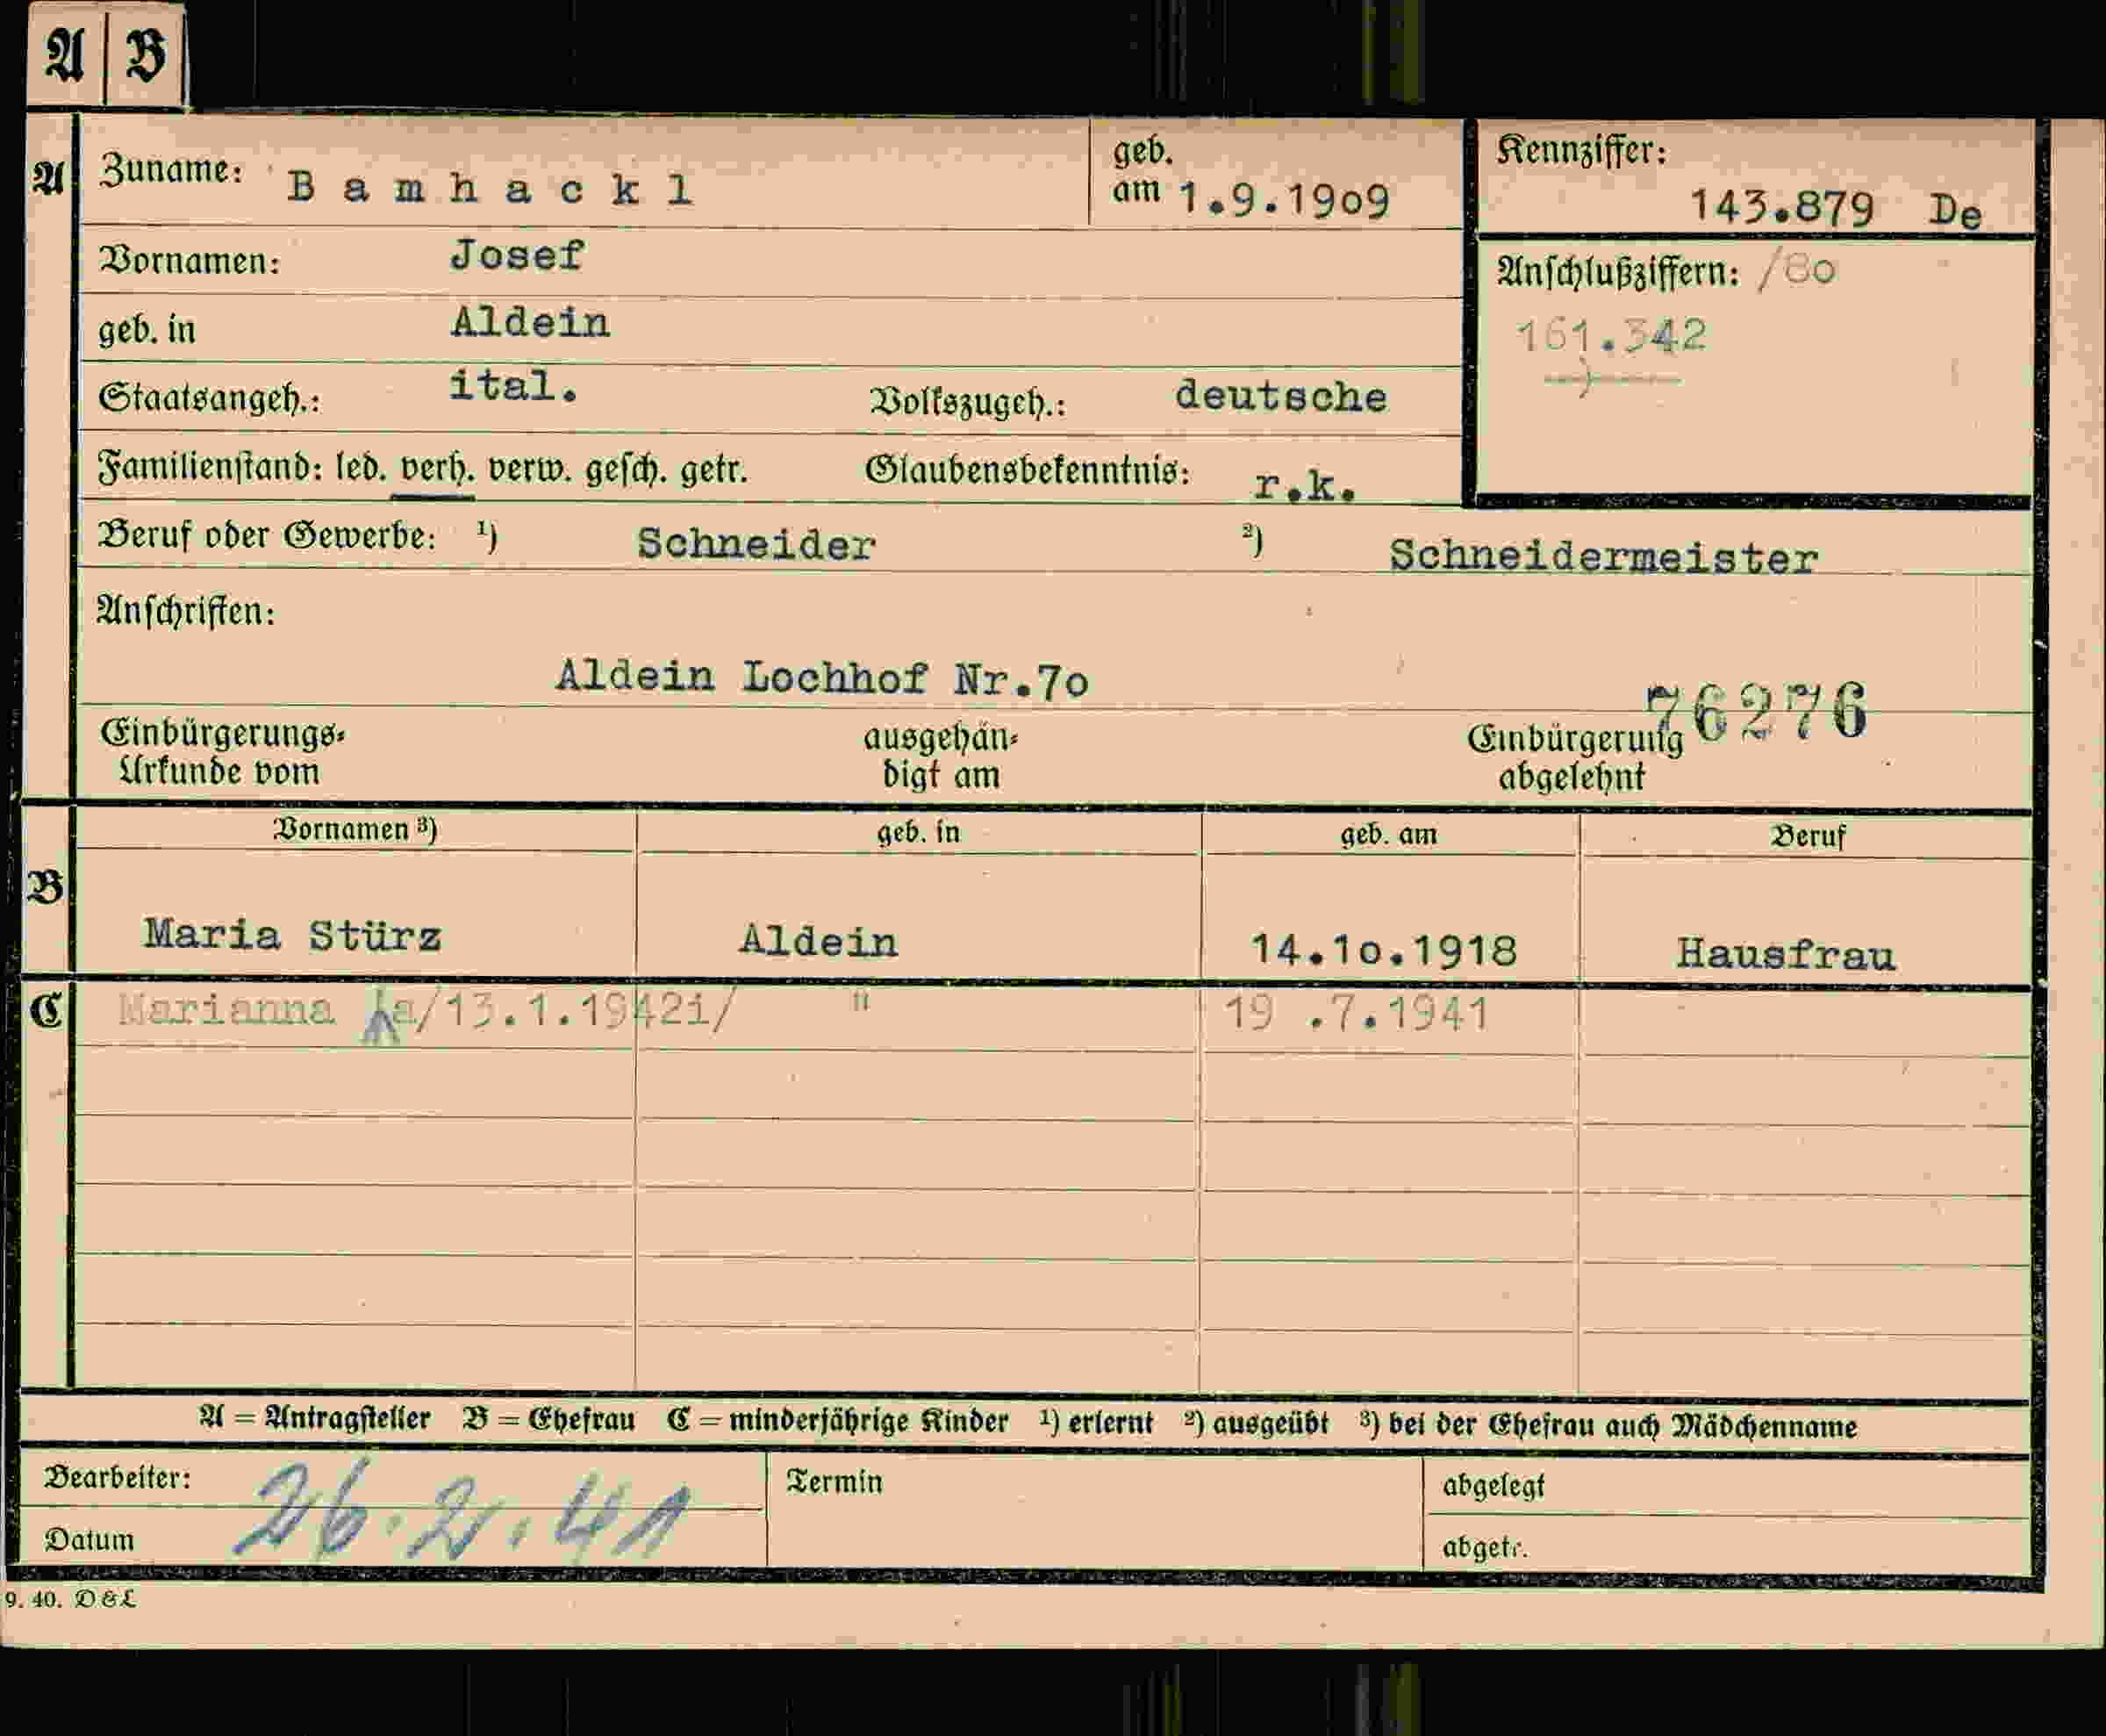 A B
A Zuname: Bamhackl geb. am 1.9.1909 Kennziffer: 143.879 De
Vornamen: Josef Anschlußziffern: /80
geb. in Aldein 161.342
Staatsangeh.: ital. Volkszugeh.: deutsche
Familienstand: led. verh. verw. gesch. getr. Glaubensbekenntnis: r.k.
Beruf oder Gewerbe: ¹) Schneider ²) Schneidermeister
Anschriften:
Aldein Lochhof Nr.70
76276
Einbürgerungs-Urkunde vom ausgehändigt am Einbürgerung abgelehnt
Vornamen ³) geb. in geb. am Beruf
B Maria Stürz Aldein 14.10.1918 Hausfrau
C Marianna /13.1.1942i/ " 19 .7.1941
A = Antragsteller B = Ehefrau C = minderjährige Kinder ¹) erlernt ²) ausgeübt ³) bei der Ehefrau auch Mädchenname
Bearbeiter: Termin abgelegt
Datum 26.2.41 abgetr.
9. 40. D & L